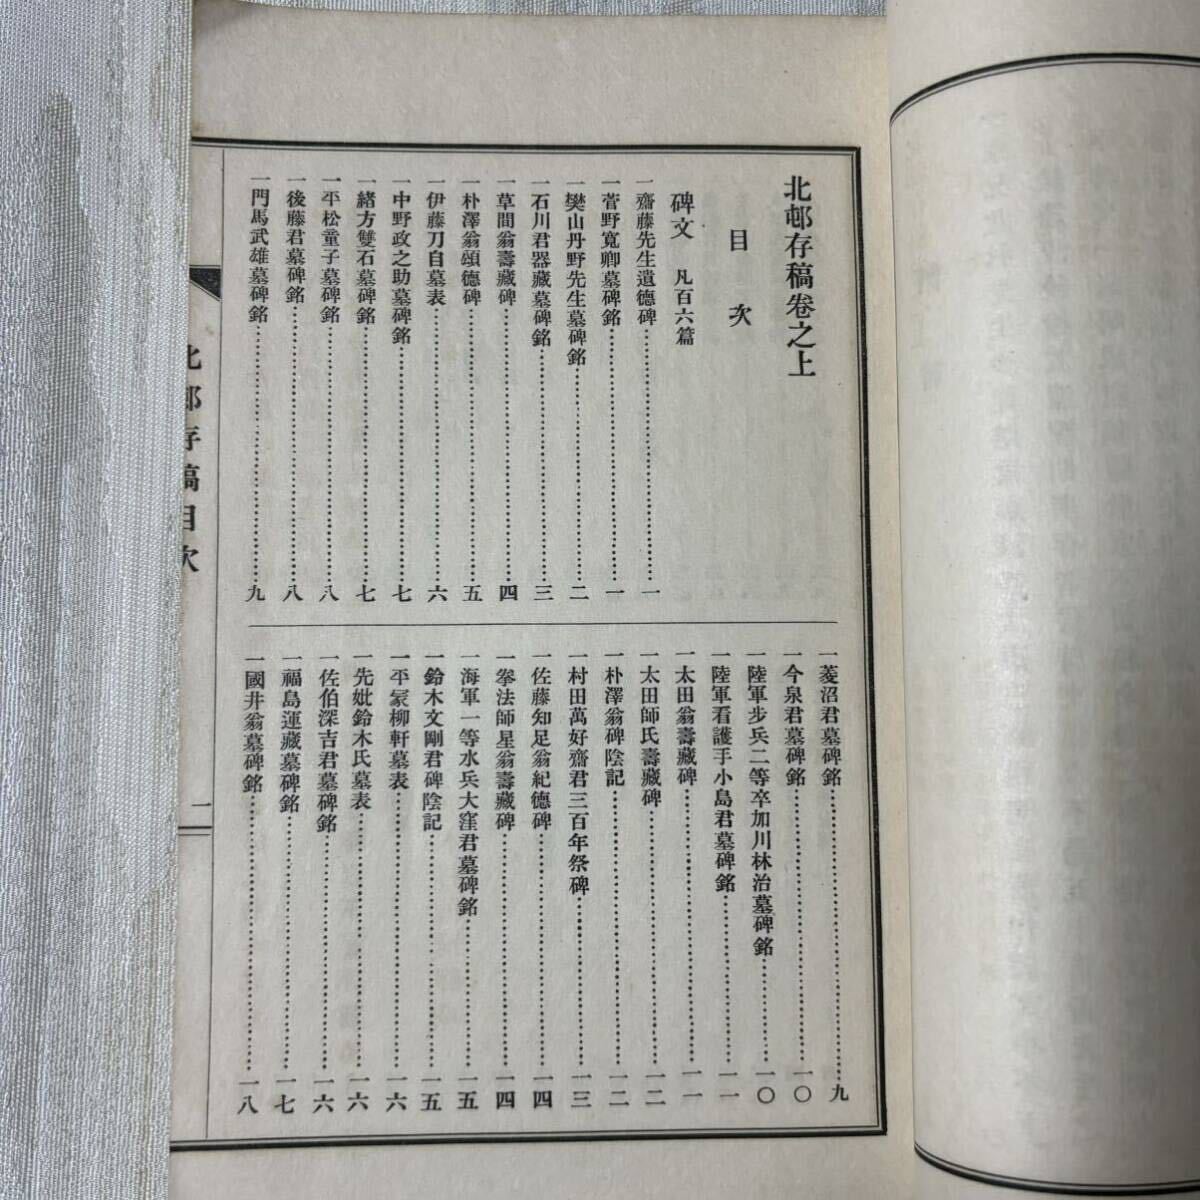 北邨存稿卷之上
目次
碑文 凡百六篇
一齋藤先生遺德碑……一
一菅野寬卿墓碑銘……一
一樊山丹野先生墓碑銘……二
一石川君器藏墓碑銘……三
一草間翁壽藏碑……四
一朴澤翁頌德碑……五
一伊藤刀自墓表……六
一中野政之助墓碑銘……七
一緒方雙石墓碑銘……七
一平松童子墓碑銘……八
一後藤君墓碑銘……八
一門馬武雄墓碑銘……九
一菱沼君墓碑銘……九
一今泉君墓碑銘……一〇
一陸軍步兵二等卒加川林治墓碑銘……一〇
一陸軍看護手小島君墓碑銘……一一
一太田翁壽藏碑……一一
一太田師氏壽藏碑……一二
一朴澤翁碑陰記……一二
一村田萬好齋君三百年祭碑……一三
一佐藤知足翁紀德碑……一四
一拳法師星翁壽藏碑……一四
一海軍一等水兵大窪君墓碑銘……一五
一鈴木文剛君碑陰記……一五
一平冢柳軒墓表……一六
一先妣鈴木氏墓表……一六
一佐伯深吉君墓碑銘……一六
一福島運藏墓碑銘……一七
一國井翁墓碑銘……一八
北邨存稿目次
一